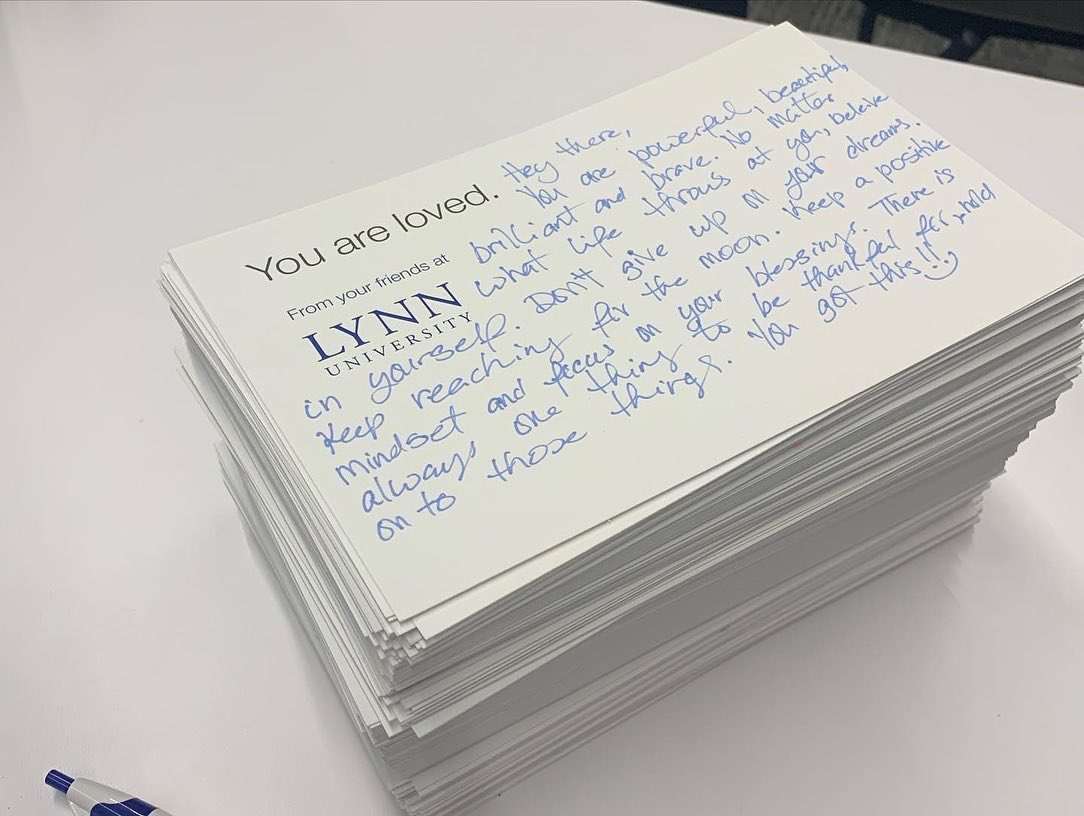 You are loved.
From your friends at
LYNN
UNIVERSITY
Hey there,
You are powerful, beautiful,
brilliant and brave. No matter
what life throws at you, beleive
in yourself. Don't give up on your dreams.
Keep reaching for the moon. Keep a positive
mindset and focus on your blessings. There is
always one thing to be thankful for, hold
on to those things. You got this!!